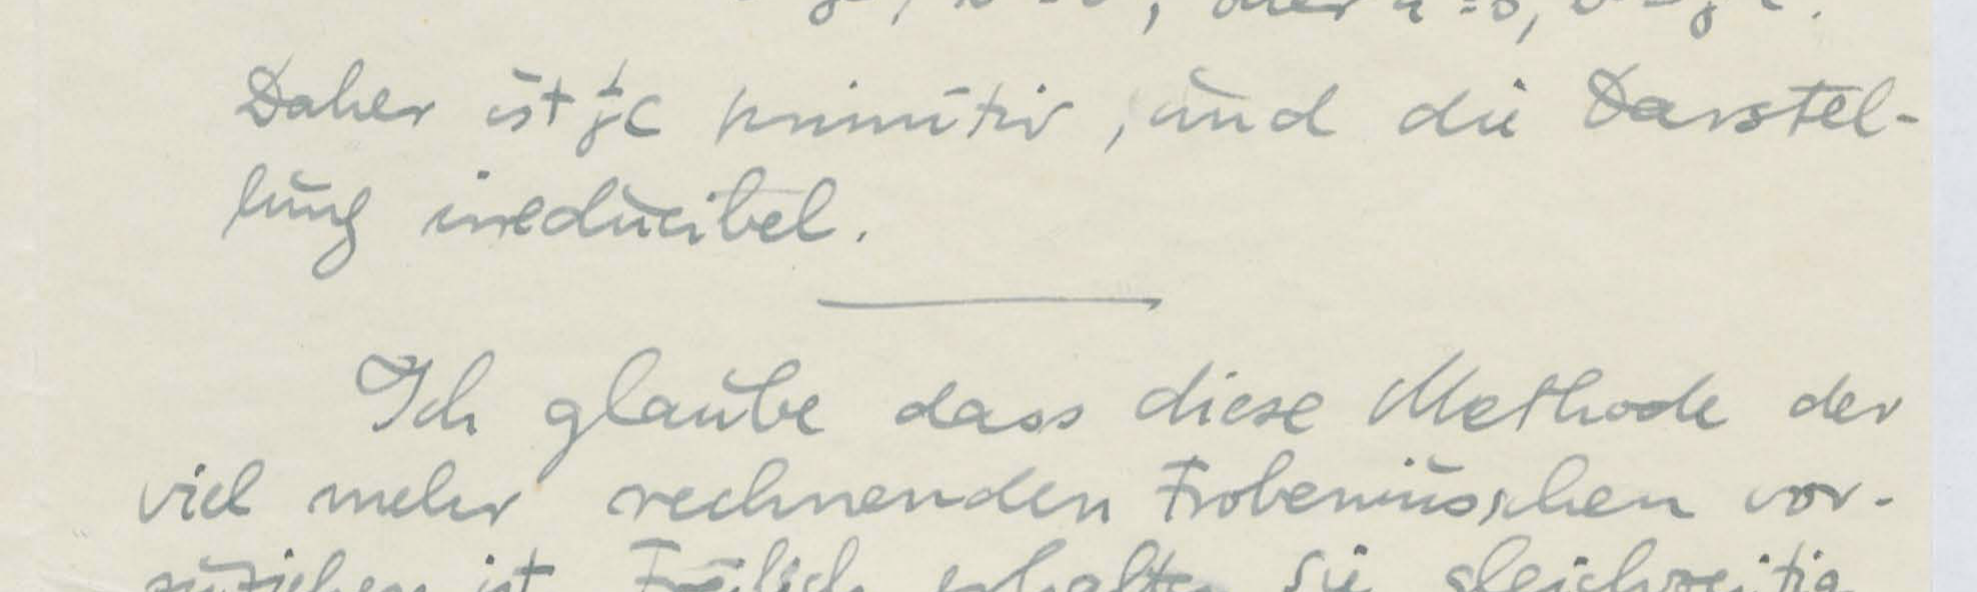 oder
Daher ist 1/γ C primitiv, und die Darstel-
lung irreducibel.
Ich glaube dass diese Methode der
viel mehr rechnenden Frobeniusschen vor-
zuziehen ist. Freilich erhalten Sie gleichzeitig